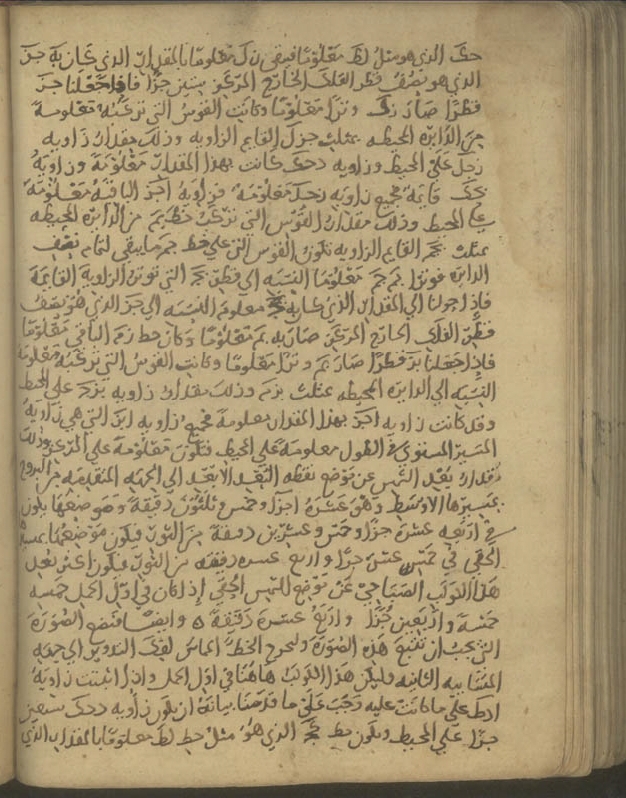 حك الذي هو مثل لط معلوما فيبقى ن ك معلوما بالمقدار الذي حازبه جز
الذي هو نصف قطر الفلك الخارج المركز ستين جزا فاذا جعلنا جز
قطرا صار زك وترا معلوما وكانت القوس التي تركبه معلومة
من الدايرة المحيطة بمثلث جزك القايم الزاويه وذلك مقدار زاويه
زجك على المحيط وزاويه دحى كانت بهذا المقدار معلومة وزاوية
قايمة فجميع زاويه زحك معلومة فزاويه اجز الباقية معلومة
على المحيط وذلك مقدار القوس التي تركب خط بم من الدايرة المحيطة
بمثلث بجم القايم الزاويه تكون القوس التي على خط جم ما يبقى لتمام نصف
الدايرة فوترا بم جم معلوما النسبه الى قطر بج التي توتر الزاوية القايمة
فاذا حولنا الى المقدار الذي صار به بج معلوم النسبه الى جز الذي هو نصف
قطر الفلك الخارج المركز صار به بم معلوما وكان خط زم الباقي معلوما
فاذا جعلنا بز قطرا صار بم وترا معلوما وكانت القوس التي تركبه معلومة
النسبه الى الدايره المحيطه بمثلث بزم وذلك مقدار زاويه بزم على المحيط
وقد كانت زاويه اجز بهذا المقدار معلومة فجميع زاويه ابز التي هي زاوية
المسير المستوي في الطول معلومة على المحيط فتكون معلومة على المركز وذلك
مقدار بعد الشمس عن موضع نقطه البعد الابعد الى الجهه المتقدمه من البروج
بمسيرها الاوسط وهو عشرة اجزا وخمس وثلثون دقيقة وموضعها يكون
في اربعه عشرة جزا وخمس وعشرين دقيقة من الثور فيكون موضعها بمسيرها
الحقي في خمس عشر جزا واربع عشره دقيقه من الثور فيكون اكثر بعد
هذا الكوكب الصباحي عن موضع الشمس الحقي اذ كان في اول الحمل خمسه
خمسة واربعين جزا واربع عشرة دقيقة ه وايضا فنضع الصورة
التي يجب ان تتبع هذه الصورة ولنخرج الخط المماس لفلك التدوير الى جهه
المتشابيه الثانيه وليكن هذا الكوكب هاهنا في اول الحمل واذا اثبتت زاوية
ادط على ما كانت عليه وجب على ما قدمنا بيانه ان يكون زاويه دحك سبعين
جزا على المحيط ويكون خط الذي هو مثل خط لط معلوما بالمقدار الذي